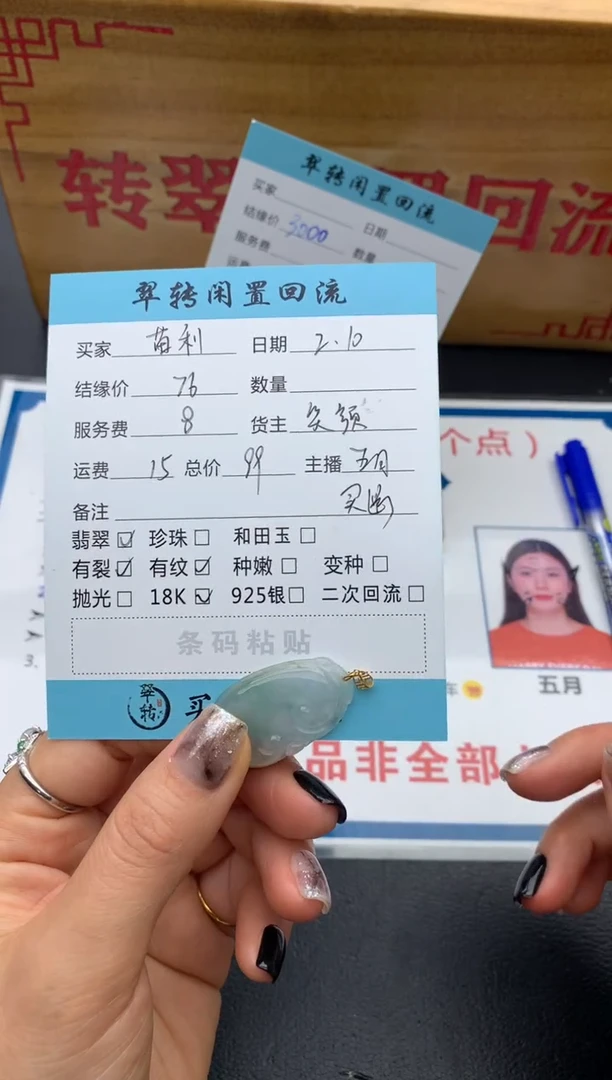 转翠
置回流
翠转闲置回流
买家
日期
结缘价 3000
数量
服务费
运费
翠转闲置回流
买家 苗利 日期 2.10
结缘价 76 数量
服务费 8 货主
运费 15 总价 99 主播 五月
备注 买断
翡翠☑ 珍珠☐ 和田玉☐
有裂☑ 有纹☑ 种嫩☐ 变种☐
抛光☐ 18K☑ 925银☐ 二次回流☐
条码粘贴
翠转 买
个点）
3.
车
五月
品非全部